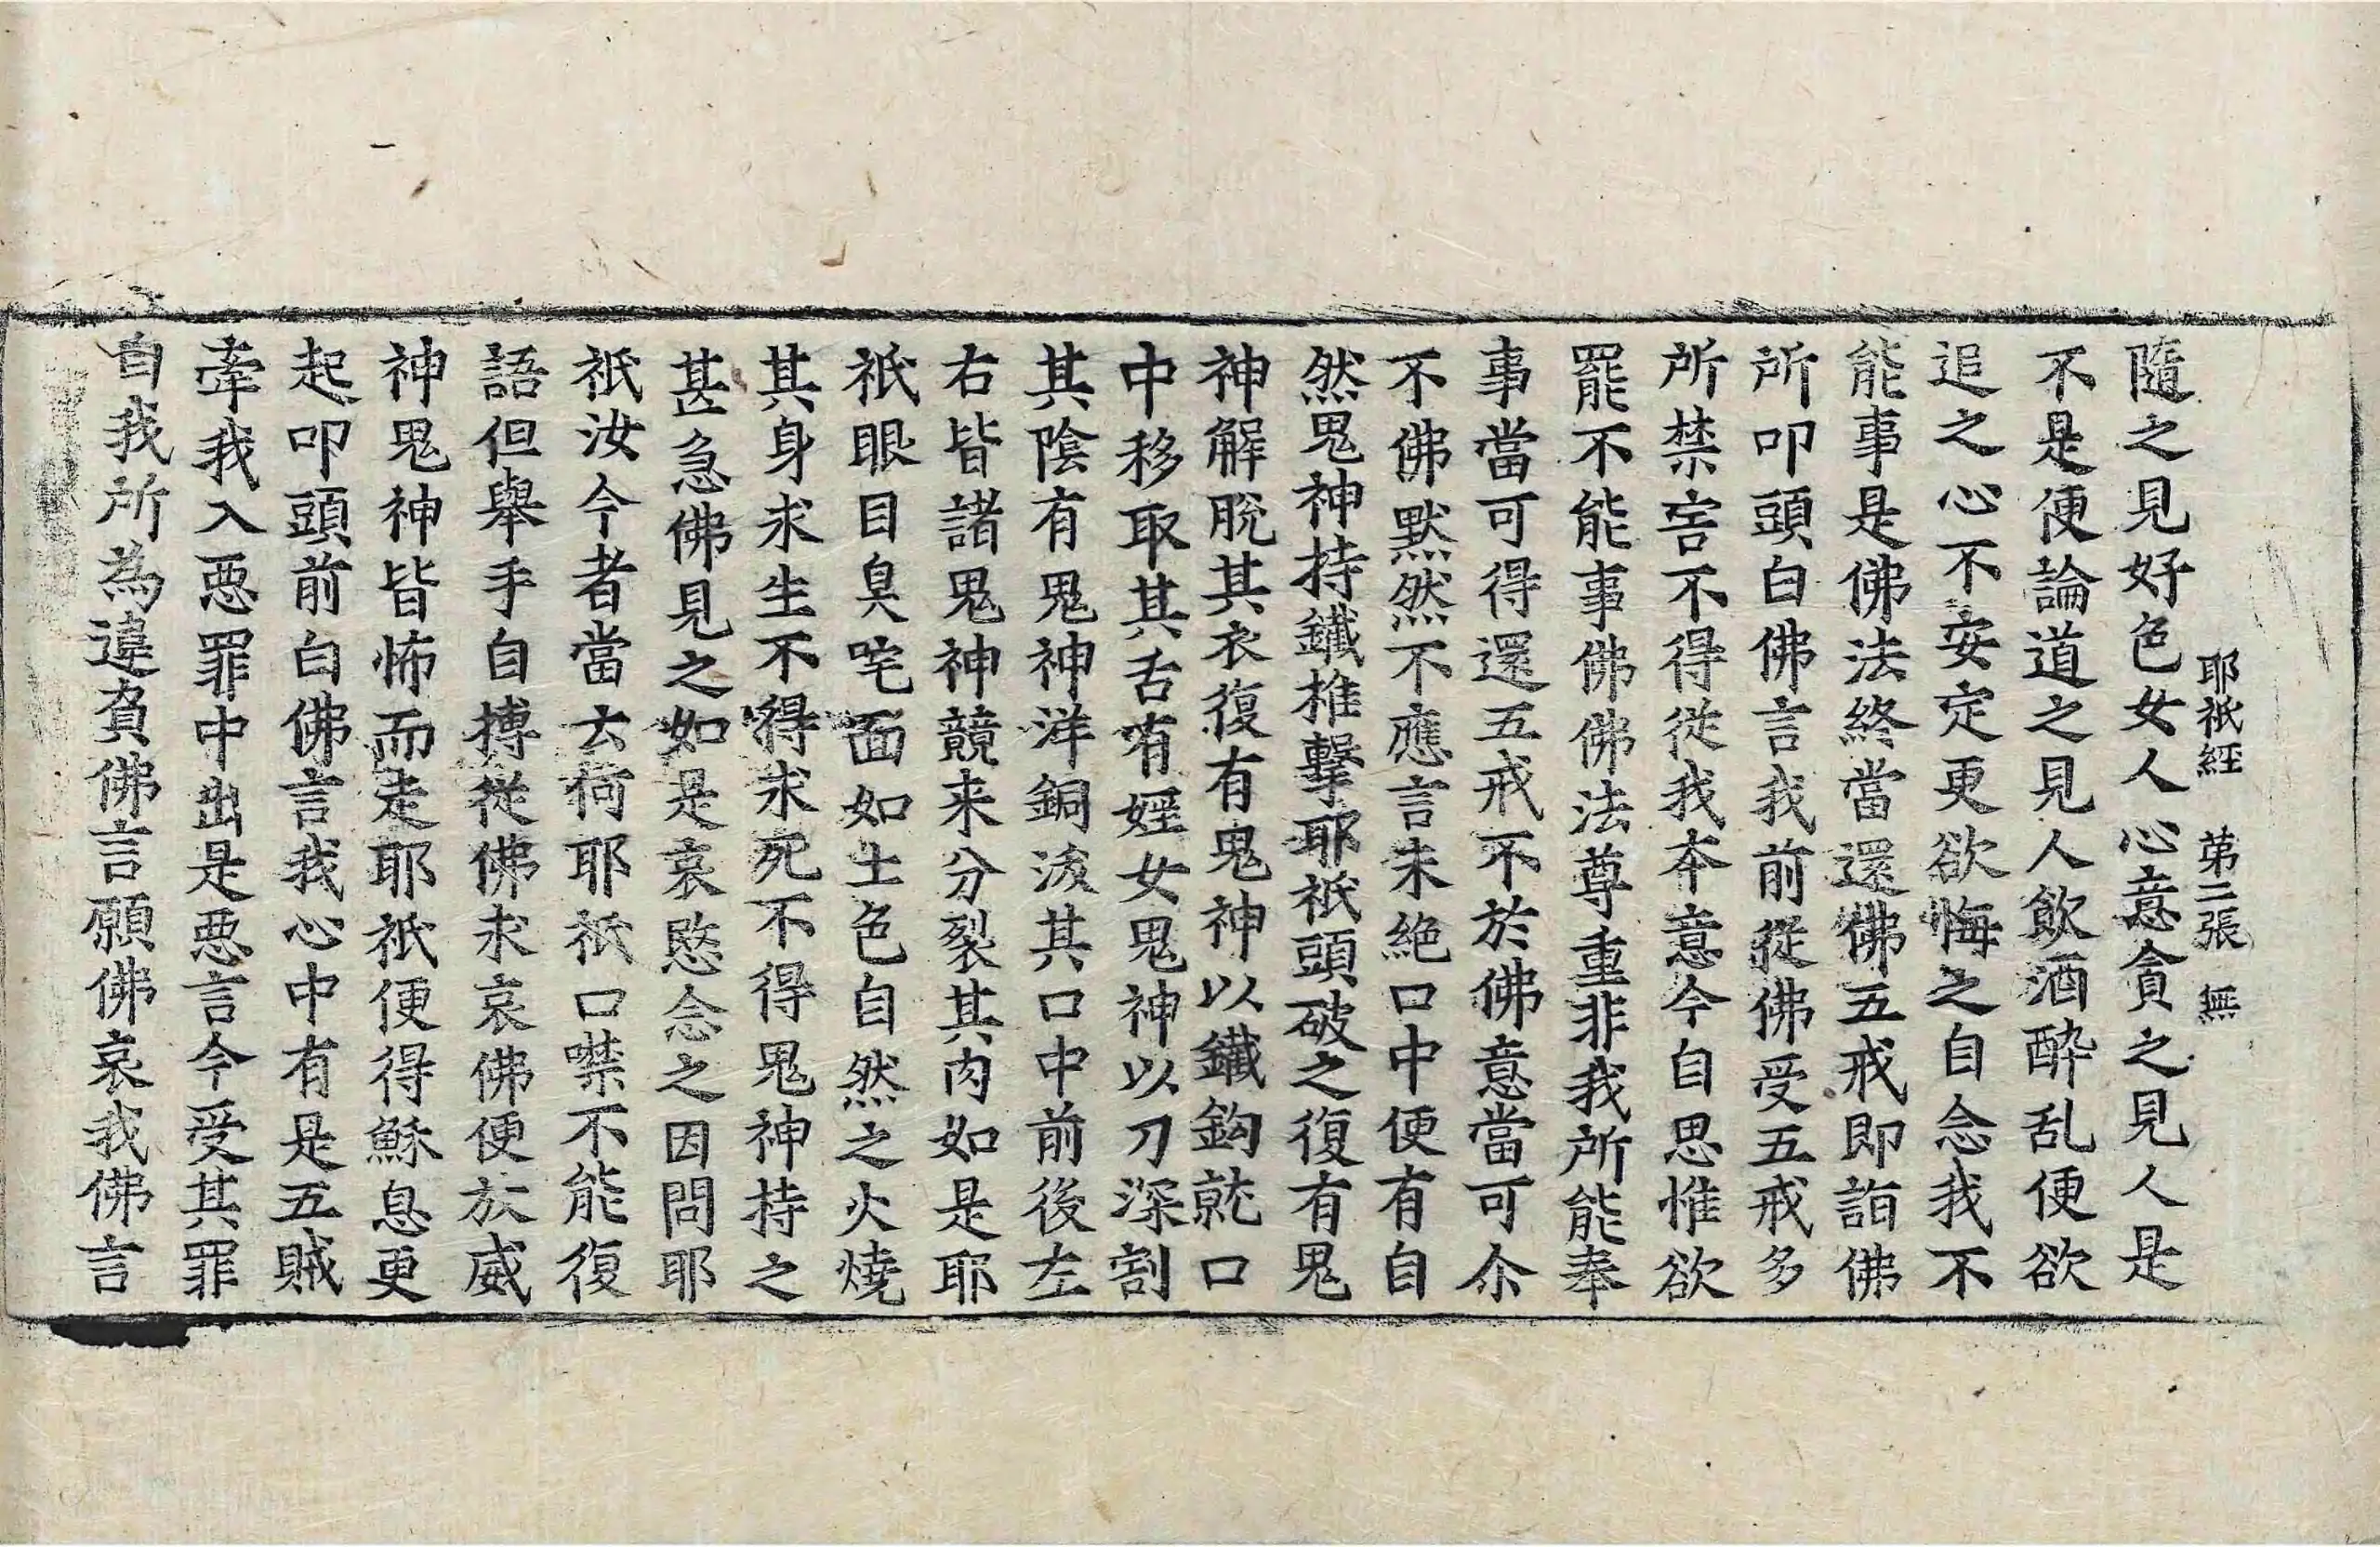 耶祇經 苐二張 無
隨之見好色女人心意貪之見人是
不是便論道之見人飲酒醉乱便欲
追之心不安定更欲悔之自念我不
能事是佛法終當還佛五戒即詣佛
所叩頭白佛言我前從佛受五戒多
所禁害不得從我夲意今自思惟欲
罷不能事佛佛法尊重非我所能奉
事當可得還五戒不於佛意當可尒
不佛默然不應言未絶口中便有自
然鬼神持鐵椎擊耶祇頭破之復有鬼
神解脫其衣復有鬼神以鐵鈎就口
中移取其舌有婬女鬼神以刀深割
其陰有鬼神洋銅沷其口中前後左
右皆諸鬼神競来分裂其肉如是耶
祇眼目臭咤面如土色自然之火燒
其身求生不得求死不得鬼神持之
甚急佛見之如是哀愍念之因問耶
祇汝今者當云何耶祇口噤不能復
語但舉手自搏從佛求哀佛便於威
神鬼神皆怖而走耶祇便得穌息更
起叩頭前白佛言我心中有是五賊
牽我入惡罪中出是惡言今受其罪
自我所為違負佛言願佛哀我佛言